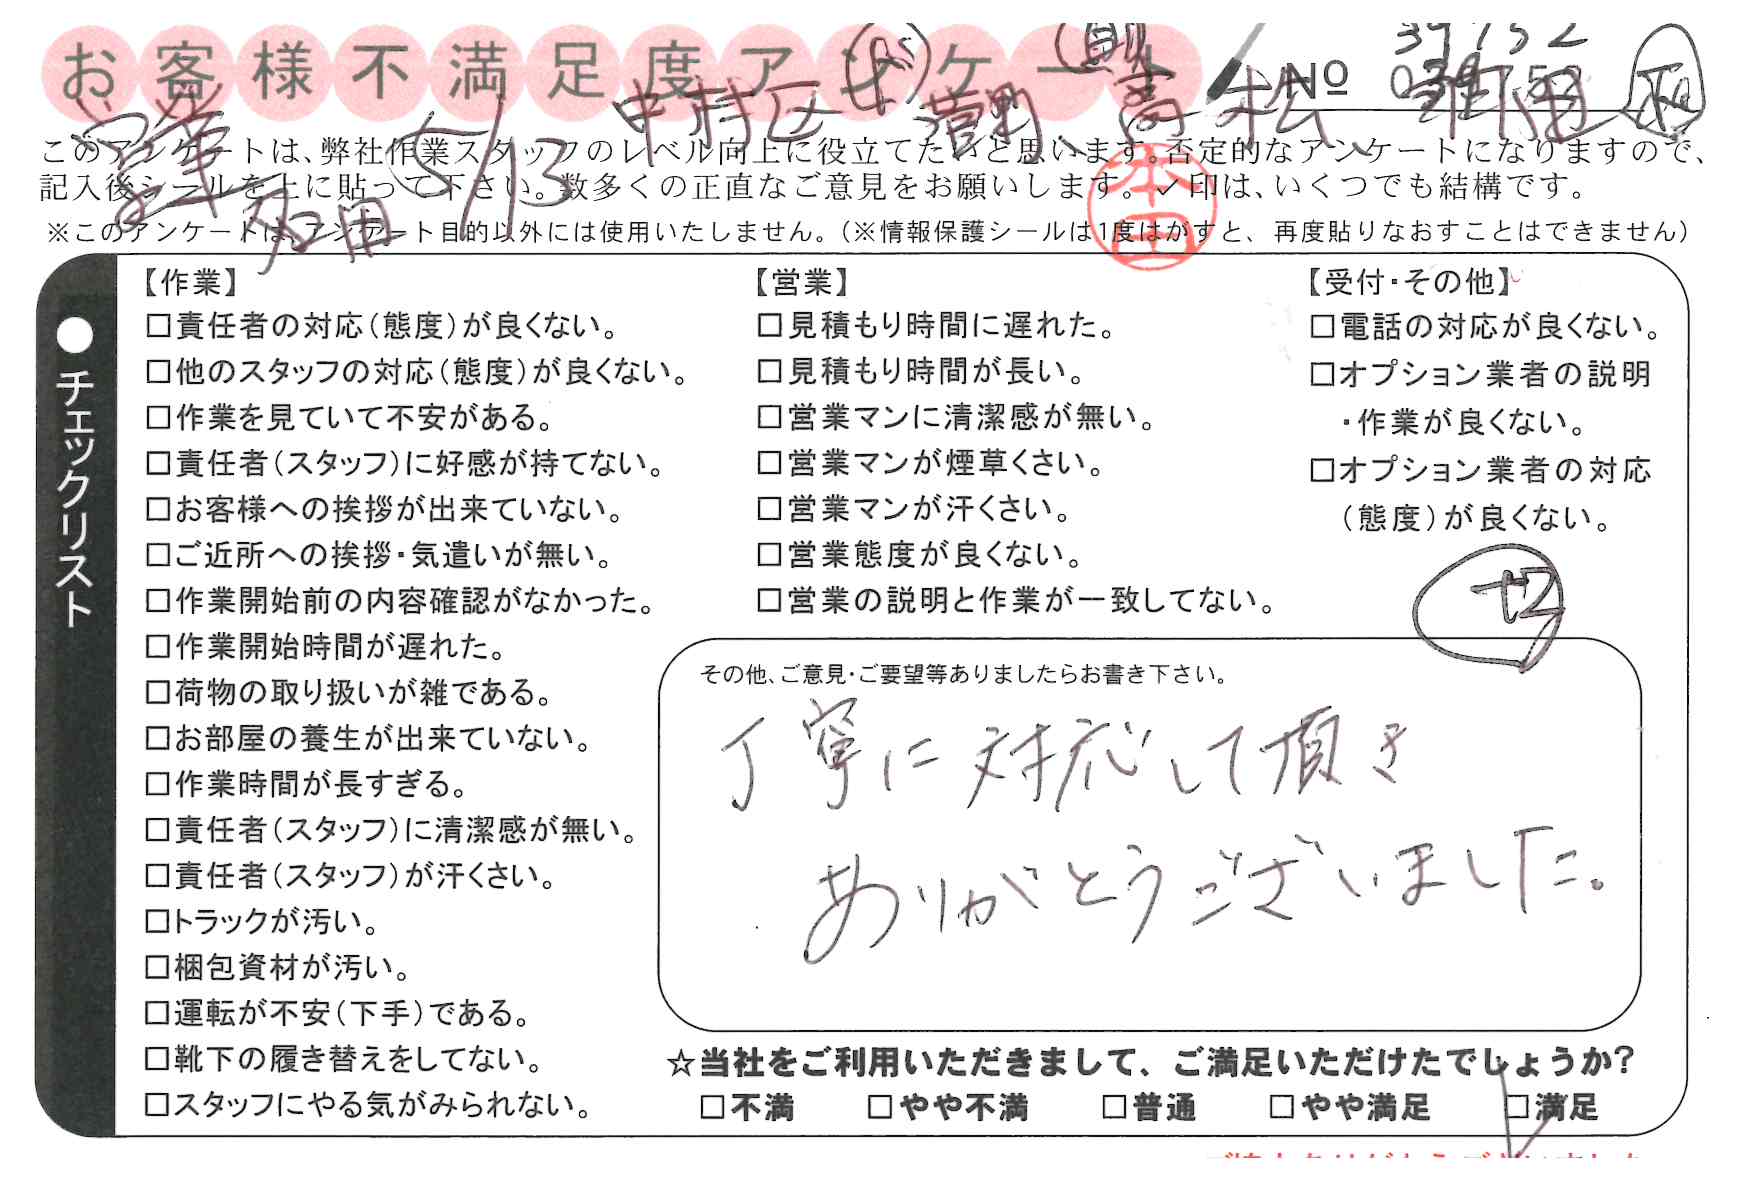 お客様不満足度アンケート
No
37752
5/13 中村区
このアンケートは、弊社作業スタッフのレベル向上に役立てたいと思います。否定的なアンケートになりますので、
記入後シールを上に貼って下さい。数多くの正直なご意見をお願いします。✓印は、いくつでも結構です。
※このアンケートは、アンケート目的以外には使用いたしません。(※情報保護シールは1度はがすと、再度貼りなおすことはできません)
本田
多田
●チェックリスト
【作業】
□責任者の対応(態度)が良くない。
□他のスタッフの対応(態度)が良くない。
□作業を見ていて不安がある。
□責任者(スタッフ)に好感が持てない。
□お客様への挨拶が出来ていない。
□ご近所への挨拶・気遣いが無い。
□作業開始前の内容確認がなかった。
□作業開始時間が遅れた。
□荷物の取り扱いが雑である。
□お部屋の養生が出来ていない。
□作業時間が長すぎる。
□責任者(スタッフ)に清潔感が無い。
□責任者(スタッフ)が汗くさい。
□トラックが汚い。
□梱包資材が汚い。
□運転が不安(下手)である。
□靴下の履き替えをしてない。
□スタッフにやる気がみられない。
【営業】
□見積もり時間に遅れた。
□見積もり時間が長い。
□営業マンに清潔感が無い。
□営業マンが煙草くさい。
□営業マンが汗くさい。
□営業態度が良くない。
□営業の説明と作業が一致してない。
【受付・その他】
□電話の対応が良くない。
□オプション業者の説明
・作業が良くない。
□オプション業者の対応
(態度)が良くない。
その他、ご意見・ご要望等ありましたらお書き下さい。
丁寧に対応して頂き
ありがとうございました。
☆当社をご利用いただきまして、ご満足いただけたでしょうか?
□不満 □やや不満 □普通 □やや満足 □満足